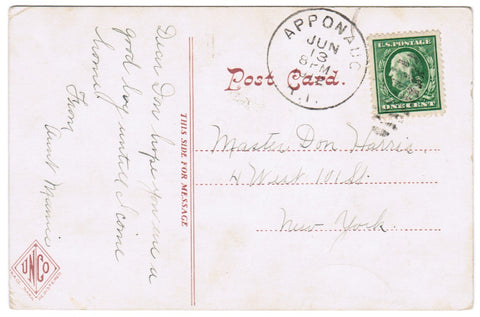 Dear Don hope you are a
good boy untill I come
home
From
Aunt Mamie
THIS SIDE FOR MESSAGE
UNCO
TRADE MARK REGISTERED
APPONAUG
JUN
13
8 PM
R.I.
U.S. POSTAGE
ONE CENT
Post Card.
Master Don Harris
4 West 101 St.
New York.